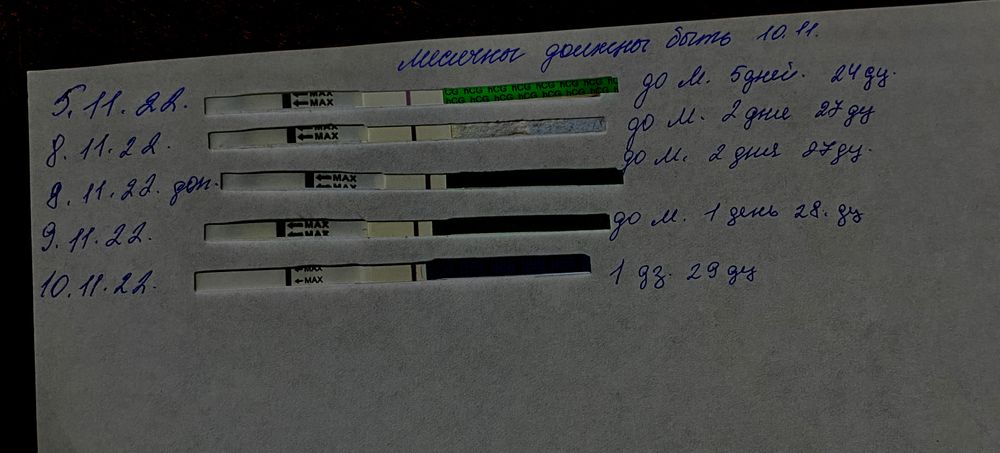 месячные должны быть 10.11.
5.11.22. MAX MAX hCG hCG hCG hCG hCG hCG hCG hCG hCG hCG hCG до М. 5 дней. 24 дц.
8.11.22. MAX MAX до М. 2 дня 27 дц
8.11.22. доп. MAX MAX до М. 2 дня 27 дц.
9.11.22. MAX MAX до М. 1 день 28. дц
10.11.22. MAX MAX 1 дз. 29 дц